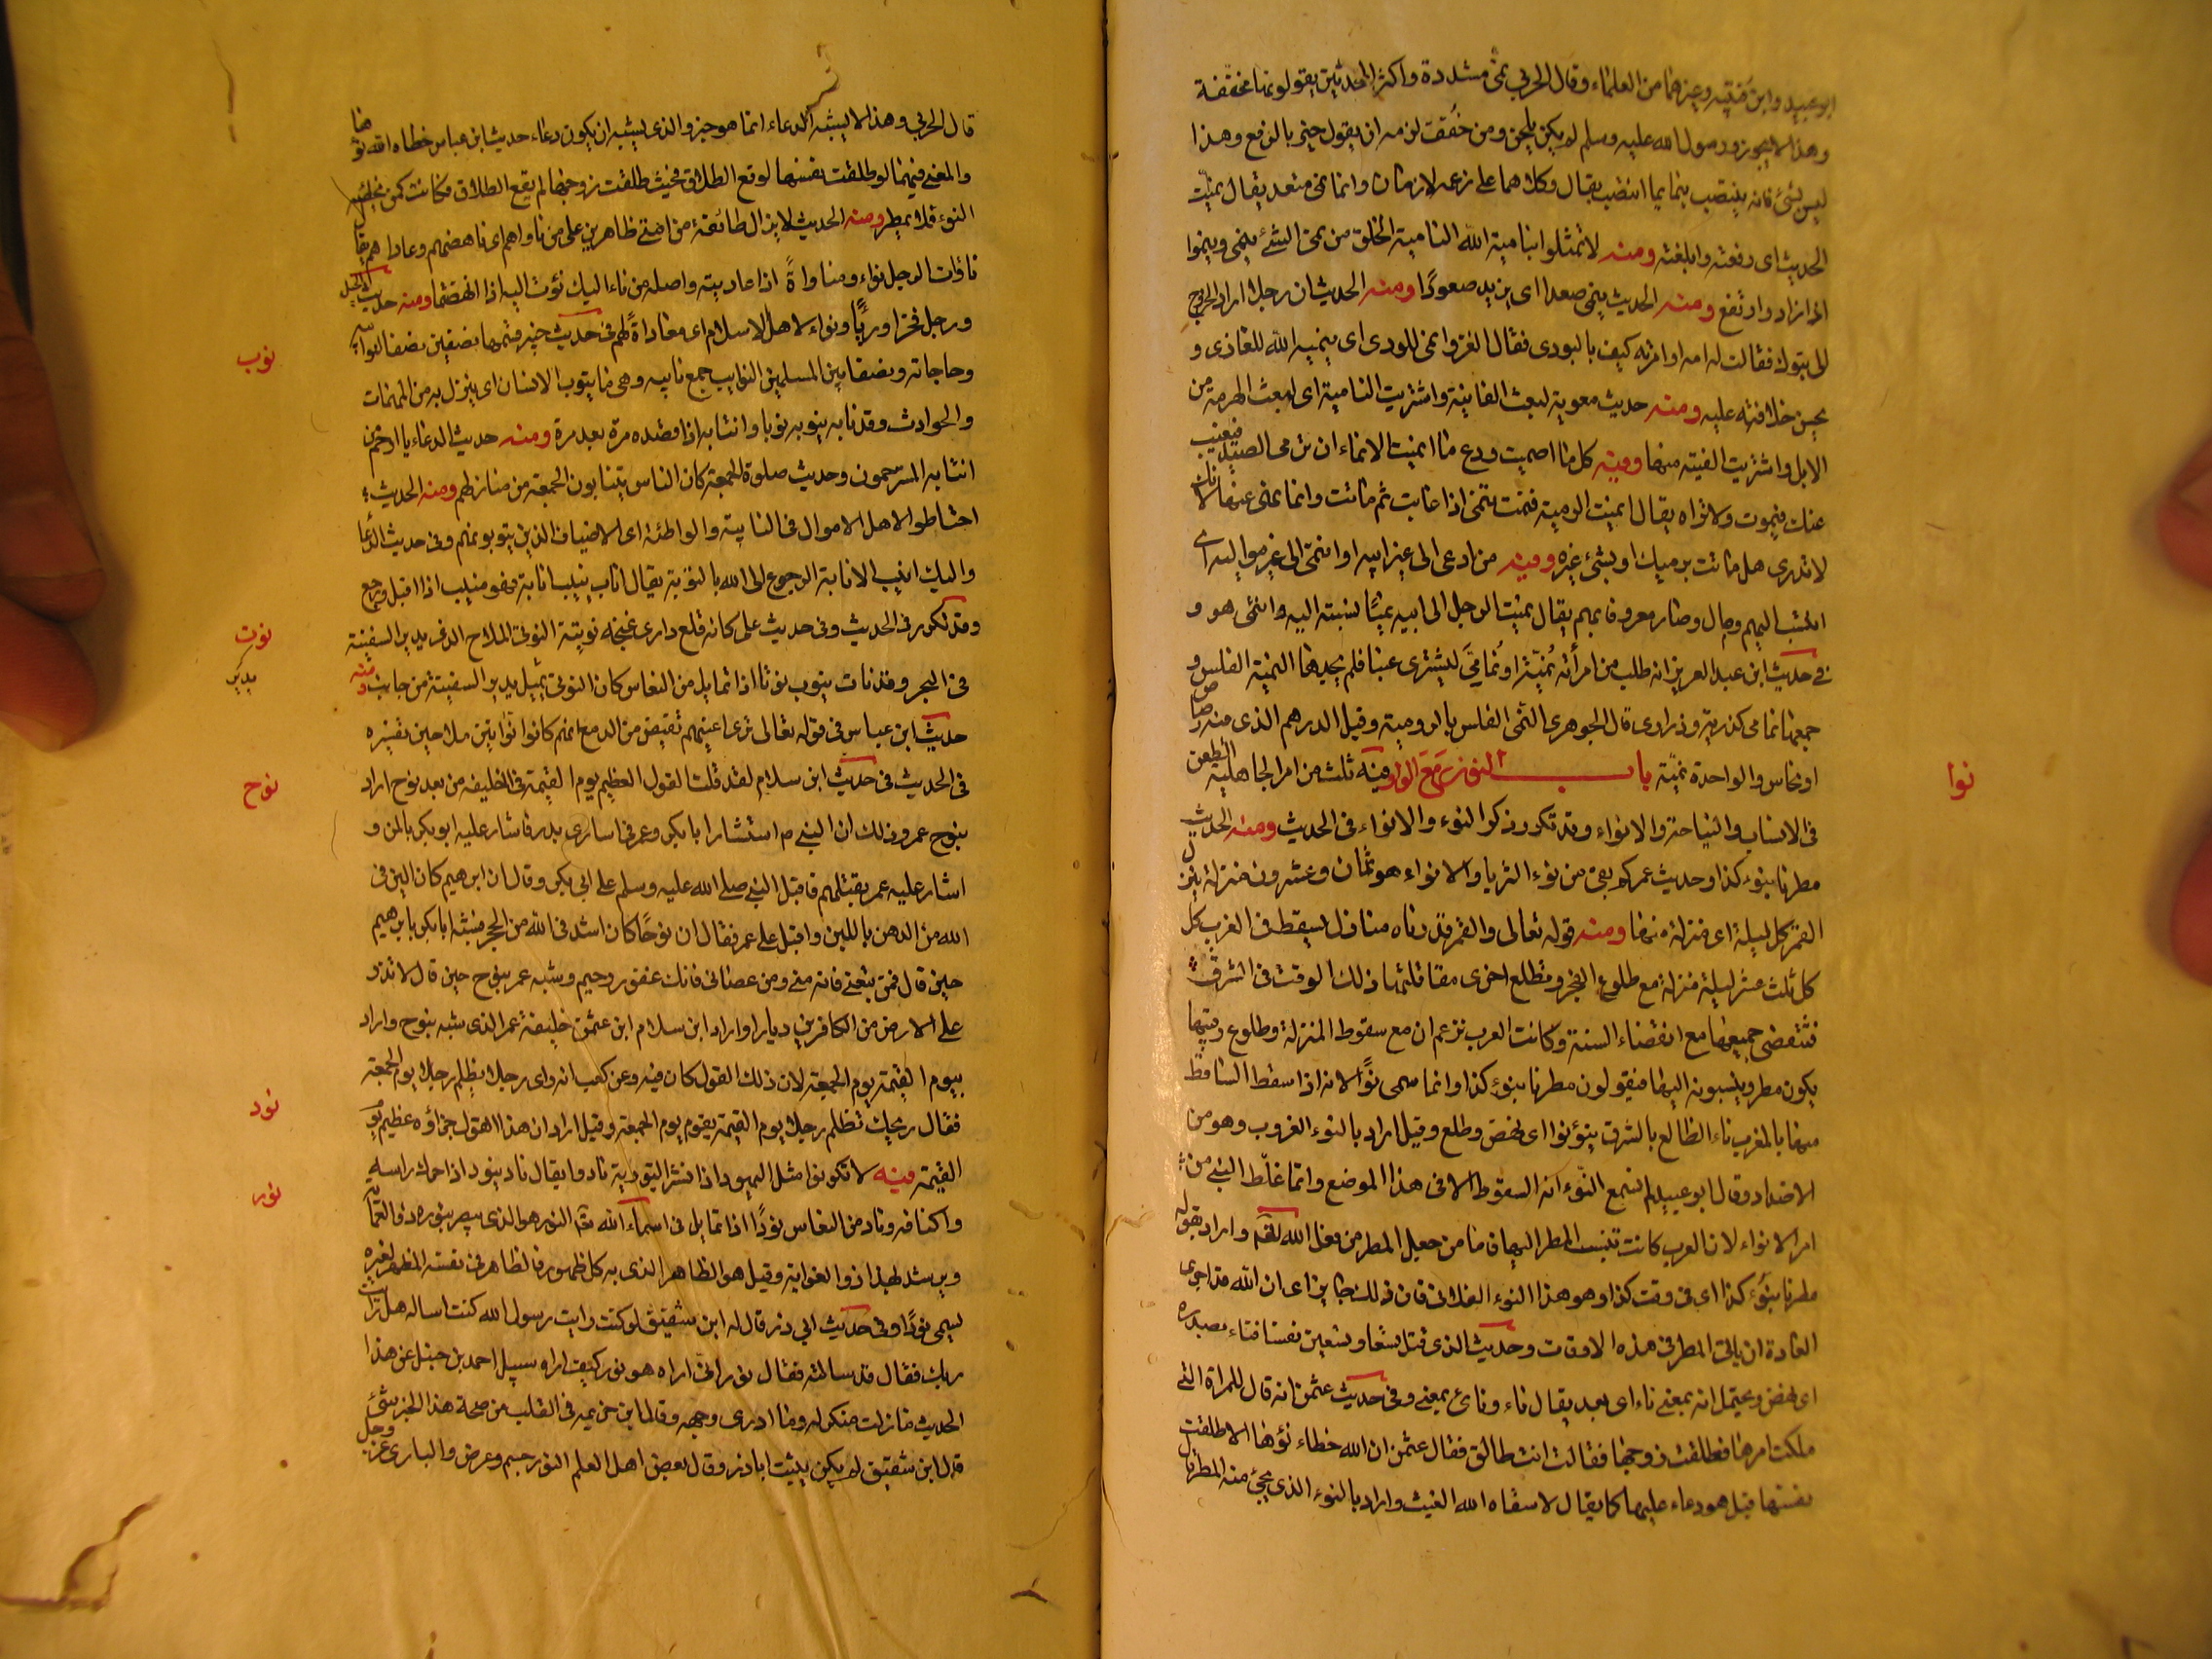 ابو عبيد وابن قتيبه وغيرهما من العلماء وقال الحربى نمى مشددة واكثر المحدثين يقولونها مخففة
وهذا لا يجوز ورسول الله عليه وسلم لم يكن يلحن ومن خفف لزمه ان يقول خير بالرفع وهذا
ليس بشئ فانه ينتصب بنما كما انتصب بقال وكلاهما على زعمه لازمان وانما نمى متعد يقال نميت
الحديث اى رفعته وابلغته ومنه لا تمثلوا بنامية الله النامية الخلق من نمى الشئ ينمى وينموا
اذا زاد وارتفع ومنه الحديث ينمى صعدا اى يزيد صعودا ومنه الحديث ان رجلا اراد الخروج
الى تبوك فقالت له امه او امرته كيف بالودى فقال الغزو انمى للودى اى ينميه الله للغازى و
يحسن خلافته عليه ومنه حديث معوية لبعث الفانية واشتريت النامية اى لبعث الهرمة من
الابل واشتريت الفتية منها وفيه كل ما اصميت ودع ما انميت الانماء ان ترمى الصيد فيغيب
عنك فيموت ولا تراه يقال انميت الرمية فنمت تنمى اذا غابت ثم ماتت وانما نهى عنها لانك
لا تدرى هل ماتت برميك او بشئ غيره وفيه من ادعى الى غير ابيه او انتمى الى غير مواليه اى
انتسب اليهم ومال وصار معروفا بهم يقال نميت الرجل الى ابيه نميا نسبته اليه وانتمى هو و
فى حديث ابن عبد العزيز انه طلب من امرأته نمية او نمامى ليشترى عنبا فلم يجدها النمية الفلس و
جمعها نمامى كذرية وذرارى قال الجوهرى النمى الفلس بالرومية وقيل الدرهم الذى فيه رصاص
او نحاس والواحدة نمية باب النون مع الواو فيه ثلث من امر الجاهلية الطعن
نوا
فى الانساب والنياحة والانواء وقد تكرر ذكر النوء والانواء فى الحديث ومنه الحديث
مطرنا بنوء كذا وحديث عمر كم بقى من نوء الثريا والانواء هو ثمان وعشرون منزلة ينزل
القمر كل ليلة اى منزلة منها ومنه قوله تعالى والقمر قدرناه منازل يسقط فى الغرب كل
كل ثلث عشر ليلة منزلة مع طلوع الفجر وتطلع اخرى مقابلتها ذلك الوقت فى الشرق
فتنقضى جميعها مع انقضاء السنة وكانت العرب تزعم ان مع سقوط المنزلة وطلوع رقيبها
يكون مطر وينسبونه اليها فيقولون مطرنا بنوء كذا وانما سمى نوأ لانه اذا سقط الساقط
منها بالمغرب ناء الطالع بالشرق ينوء نوا اى نهض وطلع وقيل اراد بالنوء الغروب وهو من
الاضداد وقال ابو عبيد لم نسمع النوء انه السقوط الا فى هذا الموضع وانما غلظ النبى من
امر الانواء لان العرب كانت تنسب المطر اليها فاما من جعل المطر من فعل الله تعه واراد بقوله
مطرنا بنوء كذا اى فى وقت كذا وهو هذا النوء الفلانى فان ذلك جايز اى ان الله قد اجرى
العادة ان ياتى المطر فى هذه الاوقات وحديث الذى قتل تسعا وتسعين نفسا فناء بصدره
اى نهض ويحتمل انه بمعنى ناء اى بعد يقال ناء ونائ بمعنى وفى حديث عثمن انه قال للمراة التى
ملكت امرها فطلقت زوجها فقالت انت طالق فقال عثمن ان الله خطاء نؤها الا طلقت
نفسها قيل هو دعاء عليها كما يقال لا سقاه الله الغيث واراد بالنوء الذى يجئ منه المطر قال
قال الحربى وهذا لا يشبه الدعاء انما هو خبر والذى يشبه ان يكون دعاء حديث ابن عباس خطاه الله نؤها
والمعنى فيهما لو طلقت نفسها لوقع الطلاق فحيث طلقت زوجها لم يقع الطلاق فكانت كمن يخطئه
النوء فلا يمطر ومنه الحديث لا يزال طائفة من امتى ظاهرين على من ناواهم اى ناهضهم وعاداهم يقال
ناوات الرجل نواء ومناواة اذا عاديته واصله من ناء اليك نؤت اليه اذا نهضتما ومنه حديث الخيل
ورجل فخرا ورياء ونواء لاهل الاسلام اى معاداة لهم فى حديث خيبر قسمها نصفين نصفا لنوائبه
نوب
وحاجاته ونصفا بين المسلمين النوايب جمع نايبه وهى ما ينوب الانسان اى ينزل به من المهمات
والحوادث وقد نابه ينوبه نوبا وانتابه اذا قصده مرة بعد مرة ومنه حديث الدعاء يا ارحم من
انتابه المسترحمون وحديث صلوة الجمعة كان الناس ينتابون الجمعة من منازلهم ومنه الحديث
احتاطوا لاهل الاموال فى النايبة والواطئة اى الاضياف الذين ينوبونهم وفى حديث الدعا
واليك انيب الانابة الرجوع الى الله بالتوبة يقال اناب ينيب انابة فهو منيب اذا اقبل ورجع
وقد تكرر فى الحديث وفى حديث على كانه قلع دارى عنجه نوتيه النوتى الملاح الذى يدير السفينة
نوت
فى البحر وقد نات ينوت نوتا اذا تمايل من النعاس كان النوتى يميل يدير السفينة من جانب ومنه
حديث ابن عباس فى قوله تعالى ترى اعينهم تفيض من الدمع انهم كانوا نواتين ملاحين تفسيره
فى الحديث فى حديث ابن سلام لقد قلت القول العظيم يوم القيمة فى الخليفه من بعد نوح اراد
نوح
بنوح عمر وذلك ان النبى م استشار ابا بكر وعمر فى اسارى بدر فاشار عليه ابو بكر بالمن و
اشار عليه عمر بقتلهم فاقبل النبى صلى الله عليه وسلم على ابى بكر وقال ان ابرهيم كان الين فى
الله من الدهن باللبن واقبل على عمر فقال ان نوحا كان اشد فى الله من الحجر فشبه ابا بكر بابرهيم
حين قال فمن تبعنى فانه منى ومن عصانى فانك غفور رحيم وشبه عمر بنوح حين قال لا تذر
على الارض من الكافرين ديارا واراد ابن سلام ان عثمن خليفة عمر الذى شبه بنوح واراد
بيوم القيمة يوم الجمعة لان ذلك القول كان فيه وعن كعب انه راى رجلا يظلم رجلا يوم الجمعة
فقال ويحك تظلم رجلا يوم القيمة يقوم يوم الجمعة وقيل اراد ان هذا القول جزاؤه عظيم يوم
نود
القيمة فيه لا تكونوا مثل اليهود اذا نشر التورية نادوا يقال ناد ينود اذا حرك راسه
واكتافه وناد من النعاس نودا اذا تمايل فى اسماء الله تعه النور هو الذى يبصر بنوره ذو العماية
نور
ويرشد بهداه ذو الغواية وقيل هو الظاهر الذى به كل ظهور فالظاهر فى نفسه المظهر لغيره
يسمى نورا وفى حديث ابى ذر قال له ابن شقيق لو كنت رايت رسول الله كنت اساله هل رايت
ربك فقال قد سالته فقال نور انى اراه هو نور كيف اراه سيل احمد بن حنبل عن هذا
الحديث ما زلت منكرا له وما ادرى وجهه وقال ابن خزيمه فى القلب من صحة هذا الخبر شئ
قال ابن شقيق لم يكن يثبت ابا ذر وقال بعض اهل العلم النور جسم وعرض والبارى عز وجل